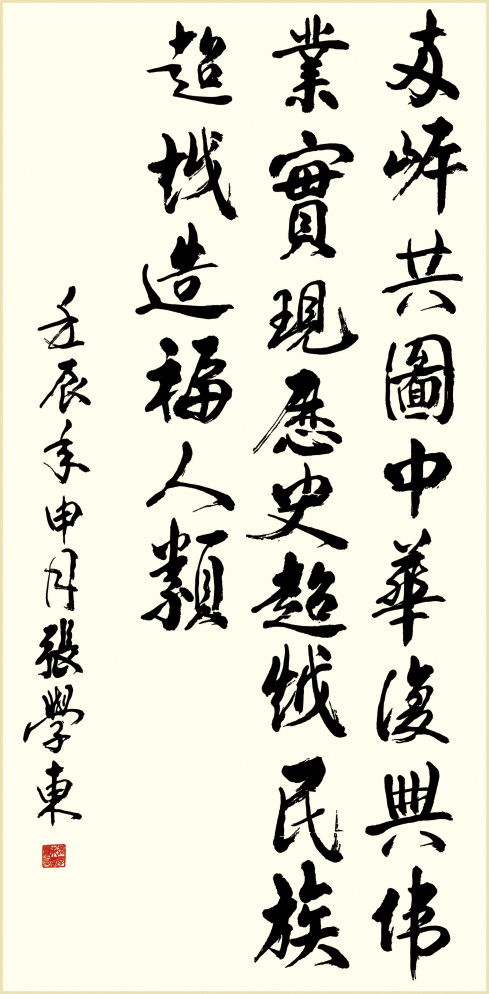 两岸共圖中華復興伟
業實現歷史超越民族
超越造福人類
壬辰年申月張學東